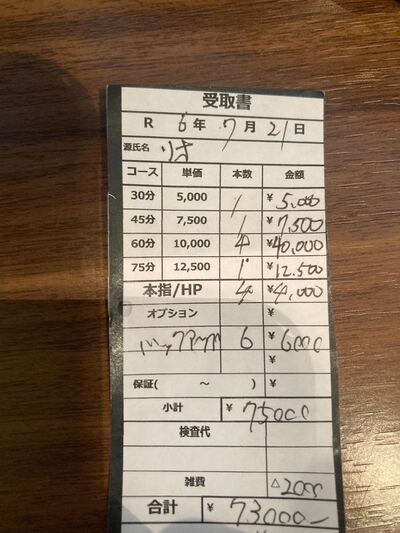 受取書
R 6年 7月 21日
源氏名 りさ
コース 単価 本数 金額
30分 5,000 1 ¥5,000
45分 7,500 1 ¥7,500
60分 10,000 4 ¥40,000
75分 12,500 1 ¥12,500
本指/HP 4 ¥4,000
オプション ¥
6 ¥6000
¥
保証( ～ ) ¥
小計 ¥75000
検査代
雑費 △2000
合計 ¥73000-